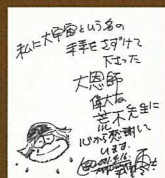 私に大軍雷という名の
拳をさずけて
下さった
大恩師
偉大な
荒木先生に
心から感謝して
います。